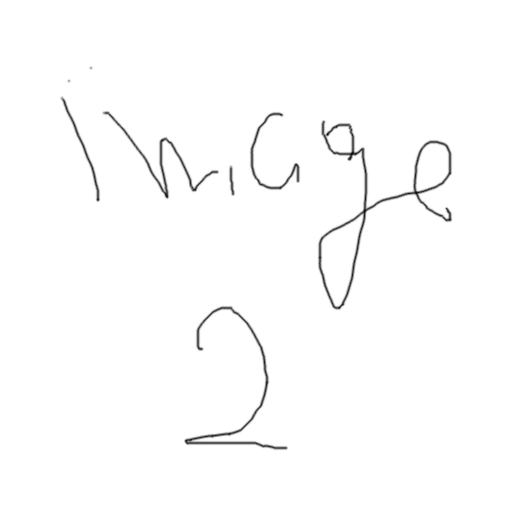 image
2